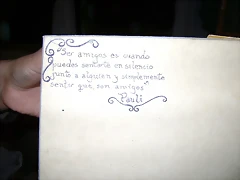 "Ser amigos es cuando
puedes sentirte en silencio
junto a alguien y simplemente
sentir que, son amigos"
Pauli